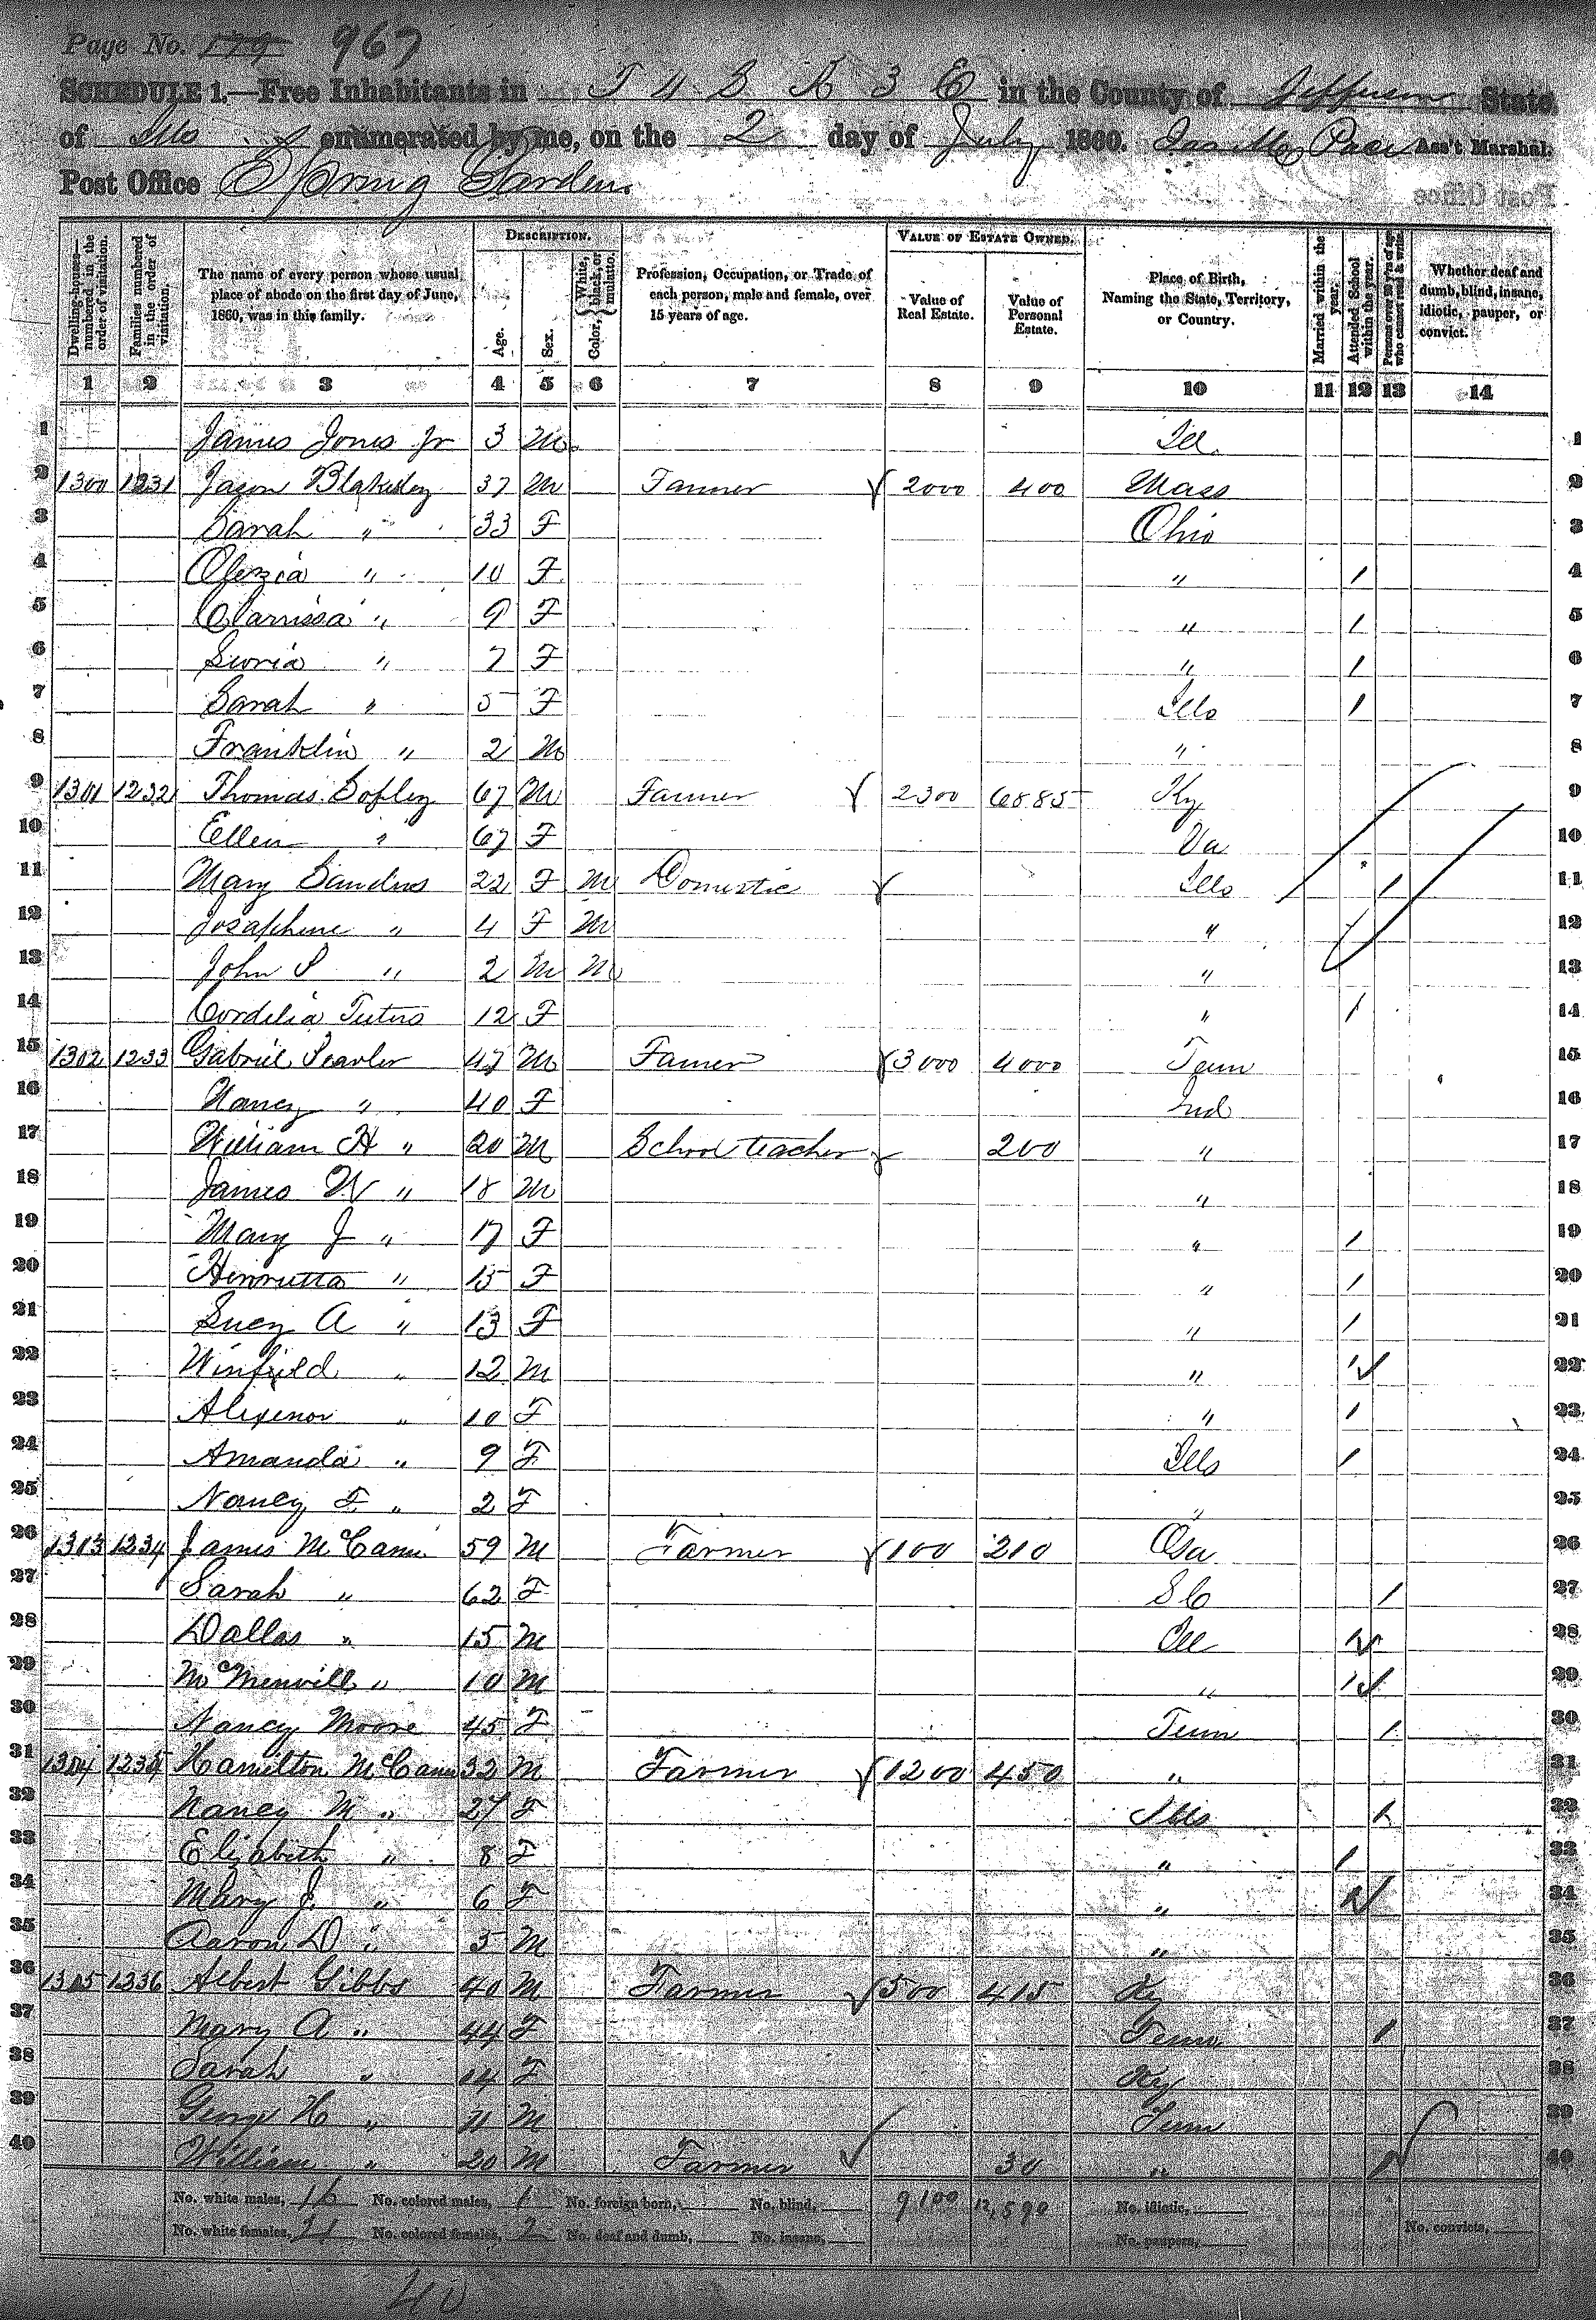 Page No. 179 967
SCHEDULE 1.—Free Inhabitants in T 4 S R 3 E in the County of Jefferson State
of Ills enumerated by me, on the 2 day of July 1860. Pace Ass't Marshal.
Post Office Spring Garden.
Dwelling-houses—numbered in the order of visitation. Families numbered in the order of visitation. The name of every person whose usual place of abode on the first day of June, 1860, was in this family. DESCRIPTION. Age. Sex. Color, {White, black, or mulatto. Profession, Occupation, or Trade of each person, male and female, over 15 years of age. VALUE OF ESTATE OWNED. Value of Real Estate. Value of Personal Estate. Place of Birth, Naming the State, Territory, or Country. Married within the year. Attended School within the year. Persons over 20 y'rs of age who cannot read & write. Whether deaf and dumb, blind, insane, idiotic, pauper, or convict.
1 2 3 4 5 6 7 8 9 10 11 12 13 14
1 James Jones Jr 3 M Ill. 1
2 1300 1231 Jason Blakesley 37 M Farmer 2000 400 Mass 2
3 Sarah " 33 F Ohio 3
4 " 10 F " / 4
5 Clarrissa " 9 F " / 5
6 " 7 F " / 6
7 Sarah " 5 F Ills / 7
8 Franklin " 2 M " 8
9 1301 1232 Thomas Hopley 67 M Farmer 2300 6885 Ky 9
10 Ellen " 67 F Va 10
11 Mary Sanders 22 F M Domestic Ills / 11
12 Josephine " 4 F M " / 12
13 John S " 2 M M " 13
14 Cordelia Teters 12 F " / 14
15 1302 1233 Gabriel 47 M Farmer 3000 4000 Tenn 15
16 Nancy " 40 F Ind 16
17 William H " 20 M School teacher 200 " 17
18 James W " 18 M " 18
19 Mary J " 17 F " / 19
20 Henrietta " 15 F " / 20
21 Lucy A " 13 F " / 21
22 Winfield " 12 M " / 22
23 Alexenor " 10 F " / 23
24 Amanda " 9 F Ills / 24
25 Nancy F " 2 F " 25
26 1303 1234 James McCann 59 M Farmer 100 210 Ga 26
27 Sarah " 62 F S C / 27
28 Dallas " 15 M Ill / 28
29 McMinvill " 10 M " / 29
30 Nancy Moore 45 F Tenn / 30
31 1304 1235 Hamilton McCann 32 M Farmer 1200 450 " 31
32 Nancy M " 27 F Ills / 32
33 Elizabeth " 8 F " / 33
34 Mary J. " 6 F " / 34
35 Aaron D " 5 M " 35
36 1305 1236 Albert Gibbs 40 M Farmer 500 415 Ky 36
37 Mary A " 44 F Tenn / 37
38 Sarah " 14 F Ky 38
39 George H " 11 M Tenn 39
40 William " 20 M Farmer 30 " / 40
No. white males, 16 No. colored males, 1 No. foreign born, No. blind, 9100 12,590 No. idiotic,
No. white females, 21 No. colored females, 2 No. deaf and dumb, No. insane, No. paupers, No. convicts,
40